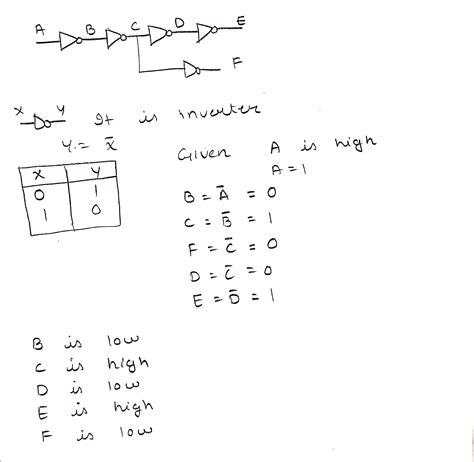 A B C D E
F
X Y It is inverter
Y = X̄
Given A is high
A = 1
X Y
0 1
1 0
B = Ā = 0
C = B̄ = 1
F = C̄ = 0
D = C̄ = 0
E = D̄ = 1
B is low
C is high
D is low
E is high
F is low